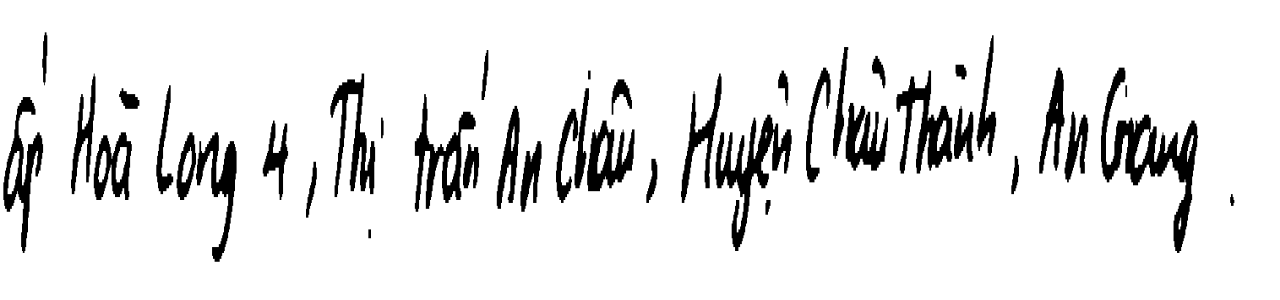 ấp Hoà Long 4, Thị trấn An Châu, Huyện Châu Thành, An Giang.